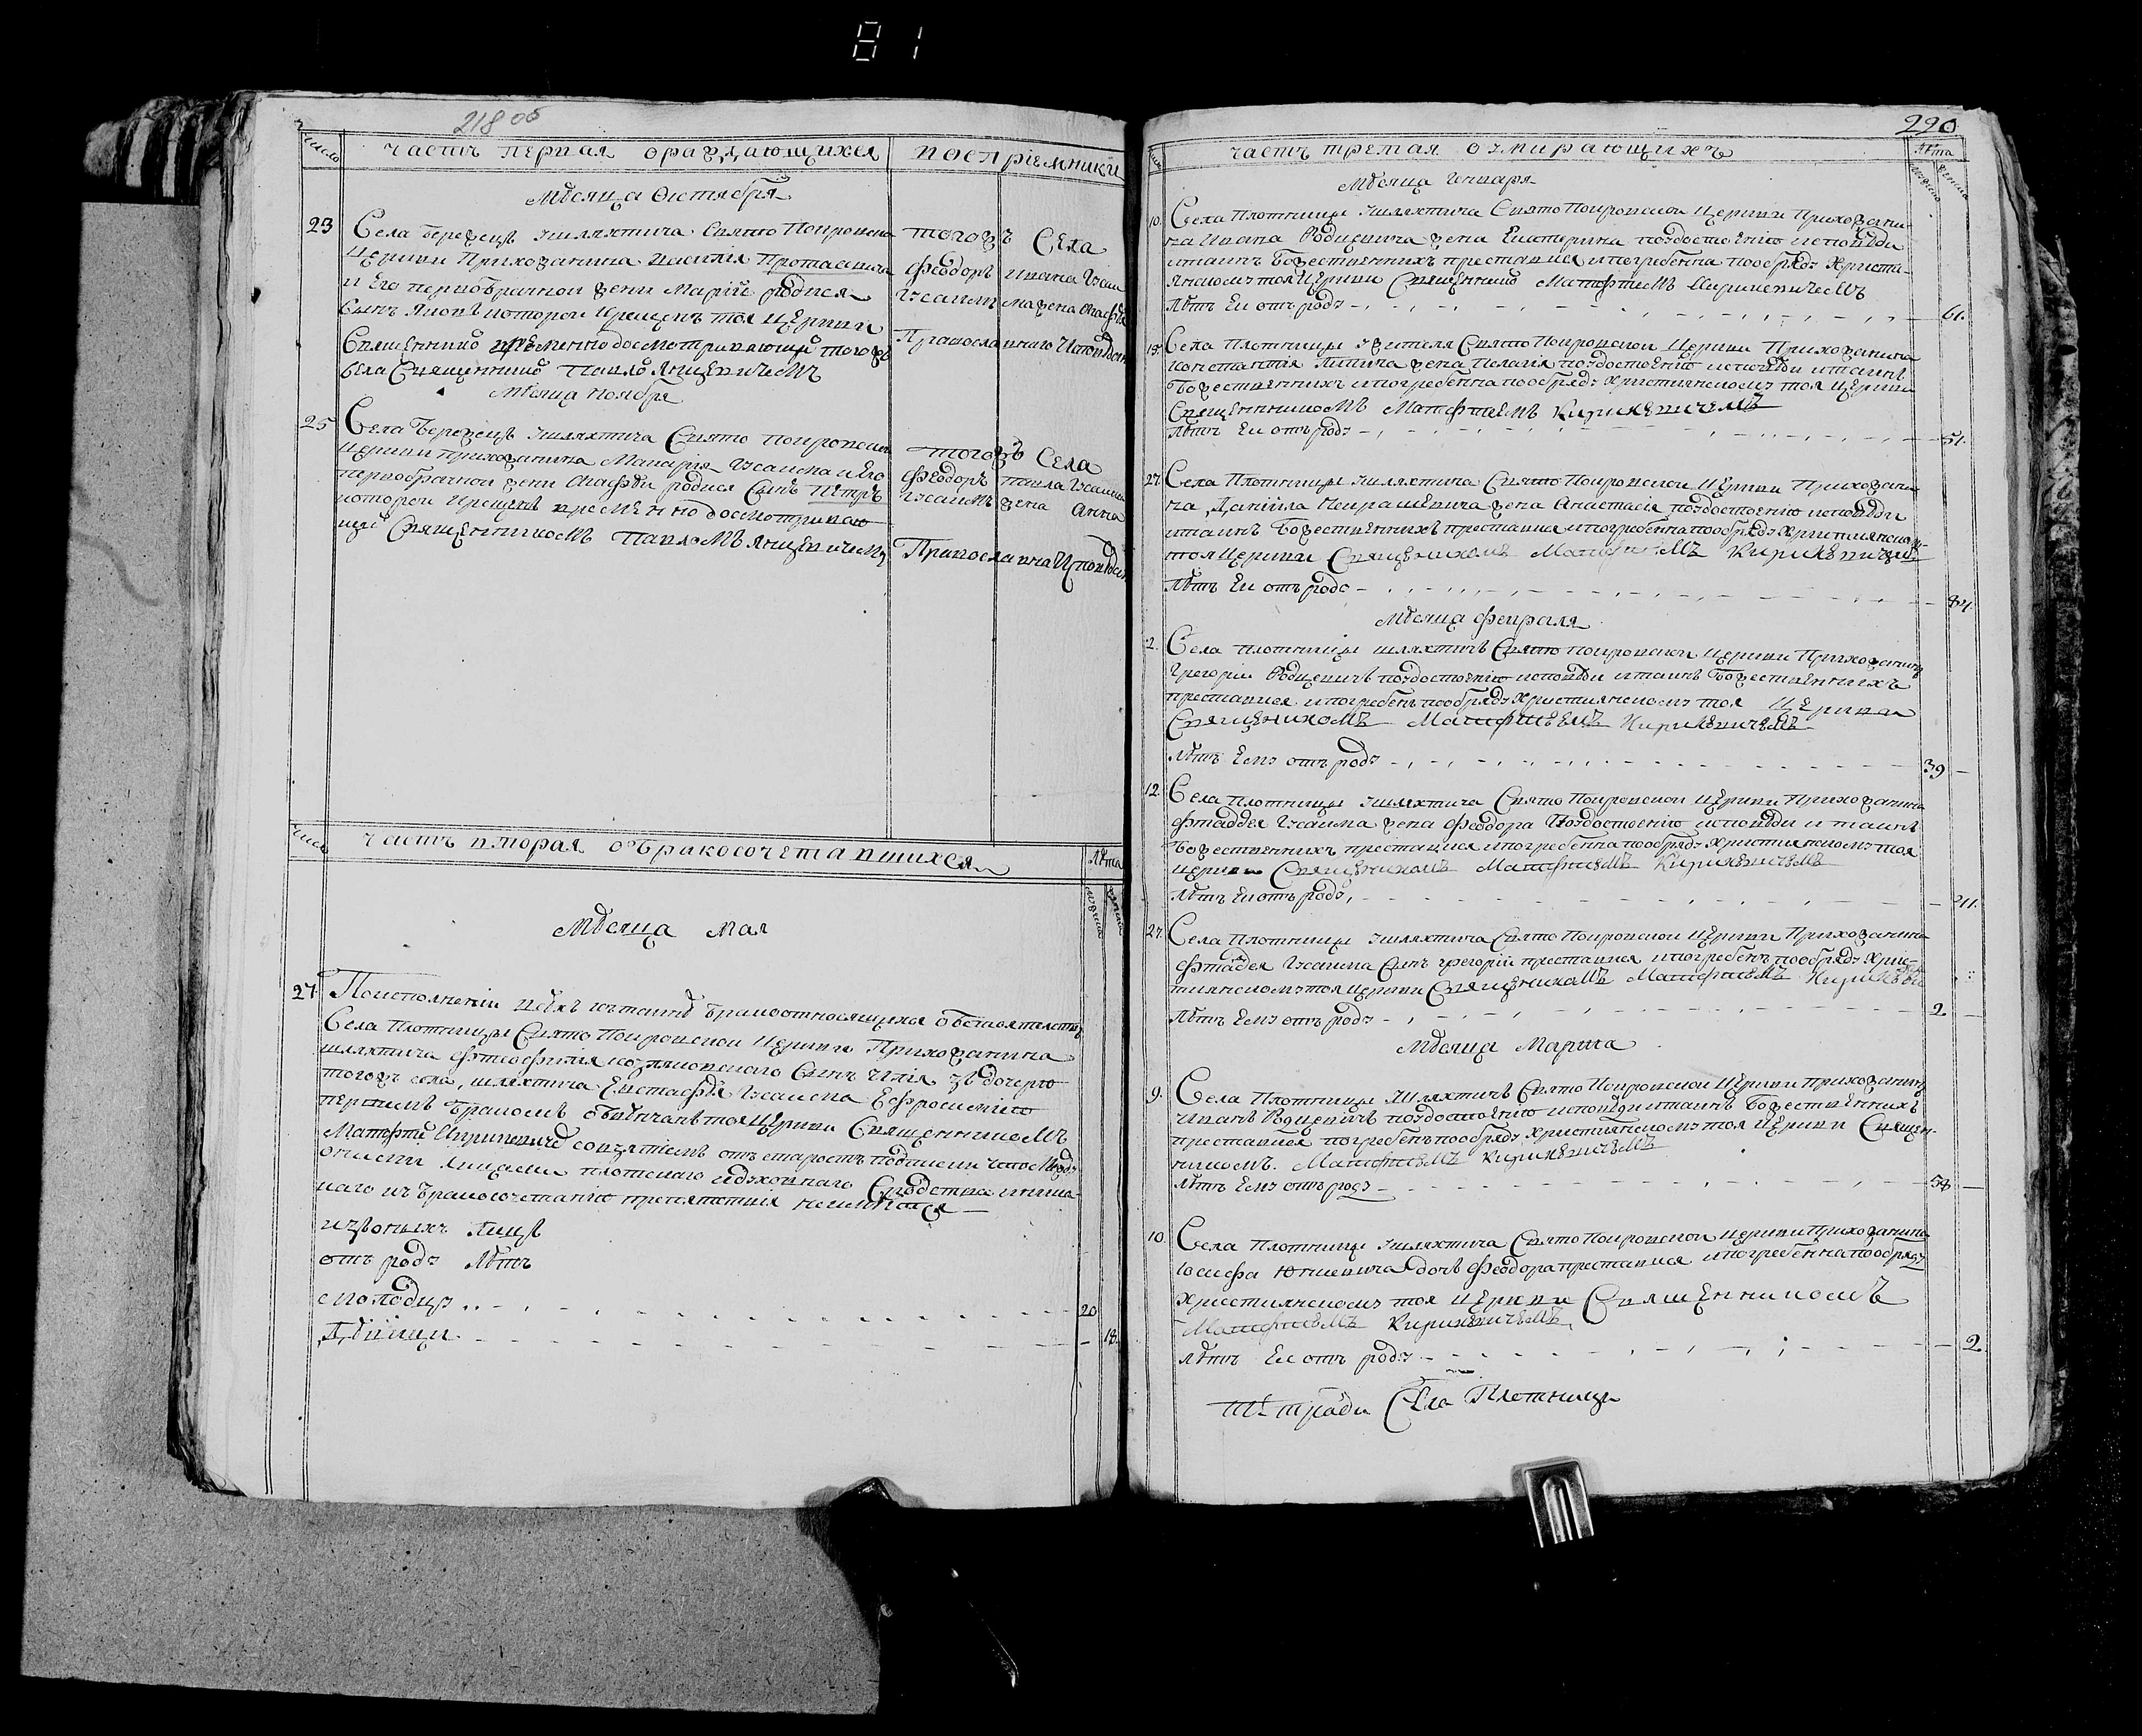 81
218 об
число
Часть первая о раждающихся
воспріемники
Мѣсяца Октября
23
Села Бережецъ шляхтича Свято Покровской
Церкви Прихожанина Василія Протасевича
и Его первобрачной жены Маріи родился
Сынъ Яковъ которой Крещенъ тоя Церкви
Священнико временно досмотривающе тогожъ
Села Священнико Павло Янцевичемъ
тогожъ Села
Феодоръ Ивана
жена Агафія
Православнаго Исповѣдан
Мѣсяца Ноября
25
Села Бережецъ шляхтича Свято Покровской
Церкви прихожанина Макарія и Его
первобрачной жены Агафіи родился Сынъ Петръ
которой Крещенъ временно досмотриваю
щи Священникомъ Павломъ Янцевичемъ
тогожъ Села
Феодоръ Павла
жена Анна
Православна Исповѣдан
число
Часть вторая о бракосочетавшихся
лѣта
Мѣсяца Мая
27
По исполненіи всѣхъ къ таинѣ Брака относящихся обстоятелствъ
Села Плотницы Свято Покровской Церкви Прихожанина
шляхтича Фтеофилія Козляковскаго Сынъ Илія зъ дочерію
тогожъ села, шляхтича Евстафія Ефросиніею
первымъ Бракомъ обвѣнчанъ тоя Церкви Священникомъ
Матфтіе Кирикевиче со взятіемъ отъ старостъ подписки что Между
оними Лицами плотскаго и духовнаго Сродства и ника-
каго къ Бракосочетанію препятствія неимѣется
изъ оныхъ Лицъ
отъ роду Лѣтъ
Молодцу 20
Дѣвицы 18.
290
Часть третая о умирающихъ
лѣта
Мѣсяца Генваря
10.
Села Плотницы шляхтича Свято Покровской Церкви Прихожани-
на Ивана Родцевича жена Екатерина по удостоенію исповѣди
и таинъ Божественныхъ преставися и погребенна по обряду Христи-
янскому тоя Церкви Священнико Матфтіемъ Кирикевичемъ
Лѣтъ Еи отъ роду 61.
15.
Села Плотницы жителя Свято Покровской Церкви Прихожанина
Константія жена Пелагія по удостоенію исповѣди и таинъ
Божественныхъ и погребенна по обряду Християнскому тоя Церкви
Священникомъ Матфтіемъ Кирикевичемъ
Лѣтъ Еи отъ роду 51.
27.
Села Плотницы шляхтича Свято Покровской Церкви Прихожани
на Даніила Кекрашевича жена Анастасія по удостоенію исповѣди
и таинъ Божественныхъ преставися и погребенна по обряду Християнскому
тоя Церкви Священикомъ Матфтіемъ Кирикевичемъ
Лѣтъ Еи отъ роду 84.
Мѣсяца Февраля
2.
Села Плотницы шляхтичъ Свято Покровской Церкви Прихожанинъ
Григорій Родцевичъ по удостоенію исповѣди и таинъ Божественныхъ
преставися и погребенъ по обряду Християнскому тоя Церкви
Священикомъ Матфтіемъ Кирикевичемъ
Лѣтъ Ему отъ роду 39
12.
Села Плотницы шляхтича Свято Покровской Церкви Прихожанина
Фтаддея жена Феодора По удостоенію исповѣди и таинъ
Божественныхъ преставися и погребенна по обряду Християнскому тоя
Церкви Священикомъ Матфтіемъ Кирикевичемъ
Лѣтъ Еи отъ роду
27.
Села Плотницы шляхтича Свято Покровской Церкви Прихожанина
Фтадея Сынъ Григорій преставися и погребенъ по обряду Хрис-
тиянскому тоя Церкви Священикомъ Матфтіемъ
Лѣтъ Ему отъ роду 2
Мѣсяца Марта
9.
Села Плотницы Шляхтичъ Свято Покровской Церкви Прихожанинъ
Иванъ Родцевичъ по удостоенію исповѣди и таинъ Божественныхъ
преставися погребенъ по обряду Християнскому тоя Церкви Священ-
никомъ. Матфтіемъ Кирикевичемъ
Лѣтъ Ему отъ роду 58
10.
Села Плотницы шляхтича Свято Покровской Церкви Прихожанина
Іосифа Юшкевича дочъ Феодора преставися и погребенна по обряду
Християнскому тоя Церкви Священникомъ
Матфтіемъ Кирикевичемъ
Лѣтъ Еи отъ роду 2
Села Плотницы